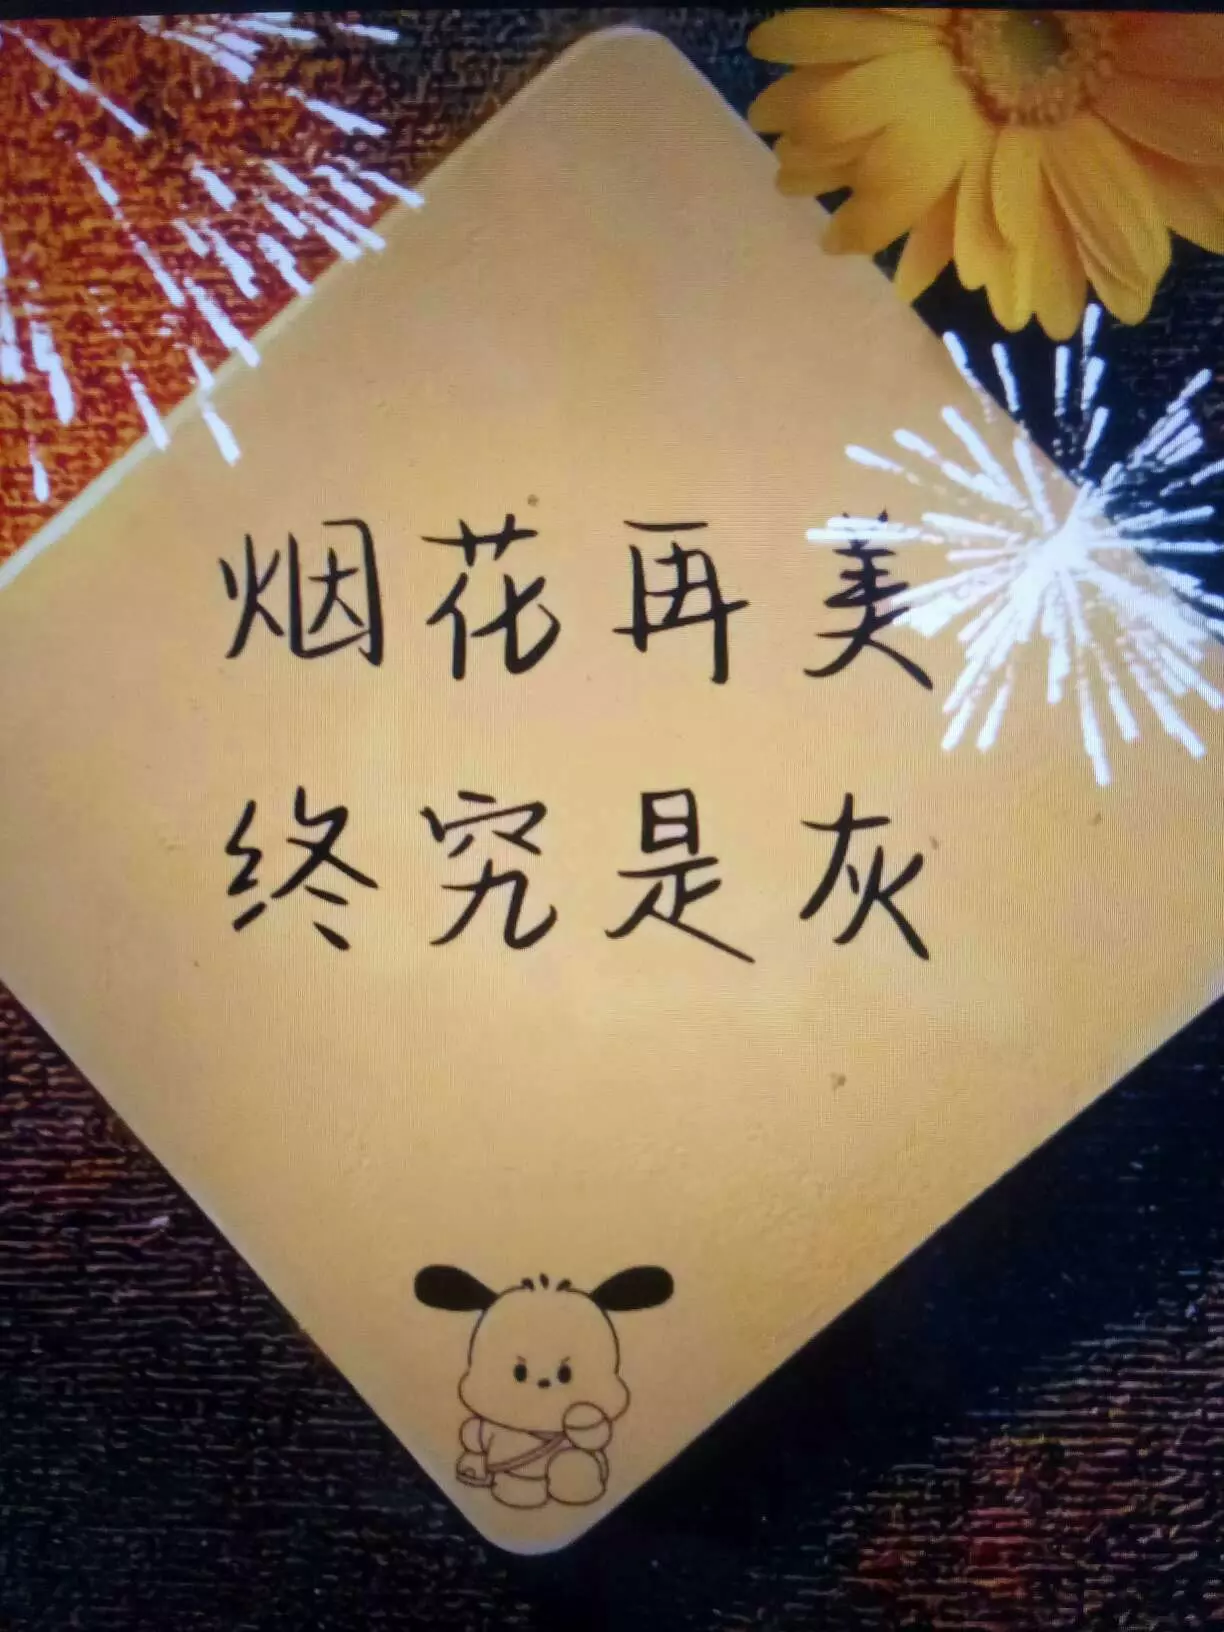 烟花再美
终究是灰